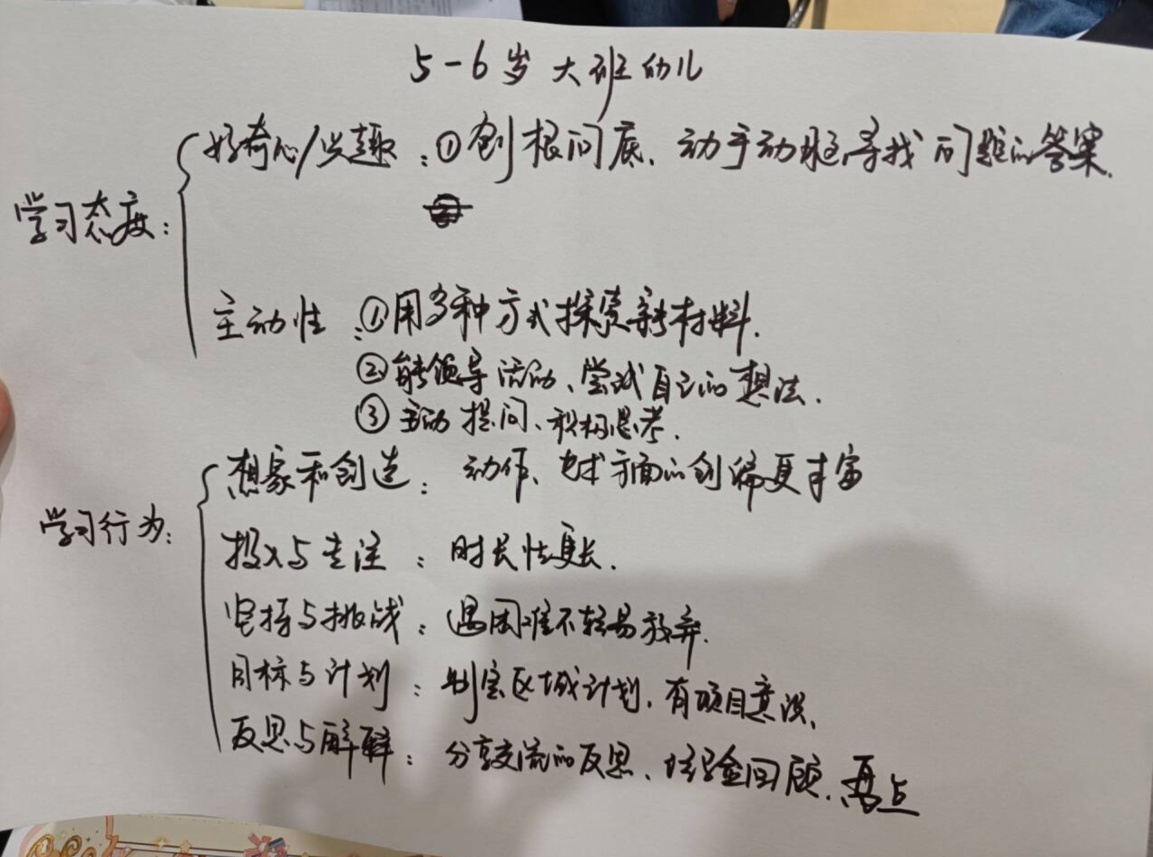 5-6岁大班幼儿
学习态度:
好奇心/兴趣:①刨根问底、动手动脑寻找问题的答案.
主动性:①用多种方式探索新材料.
②能领导活动、尝试自己的想法.
③主动提问、积极思考.
学习行为:
想象和创造:动作、艺术方面的创编更丰富
投入与专注:时长性更长.
坚持与挑战:遇困难不轻易放弃.
目标与计划:制定区域计划,有项目意识.
反思与解释:分享交流的反思、经验回顾.